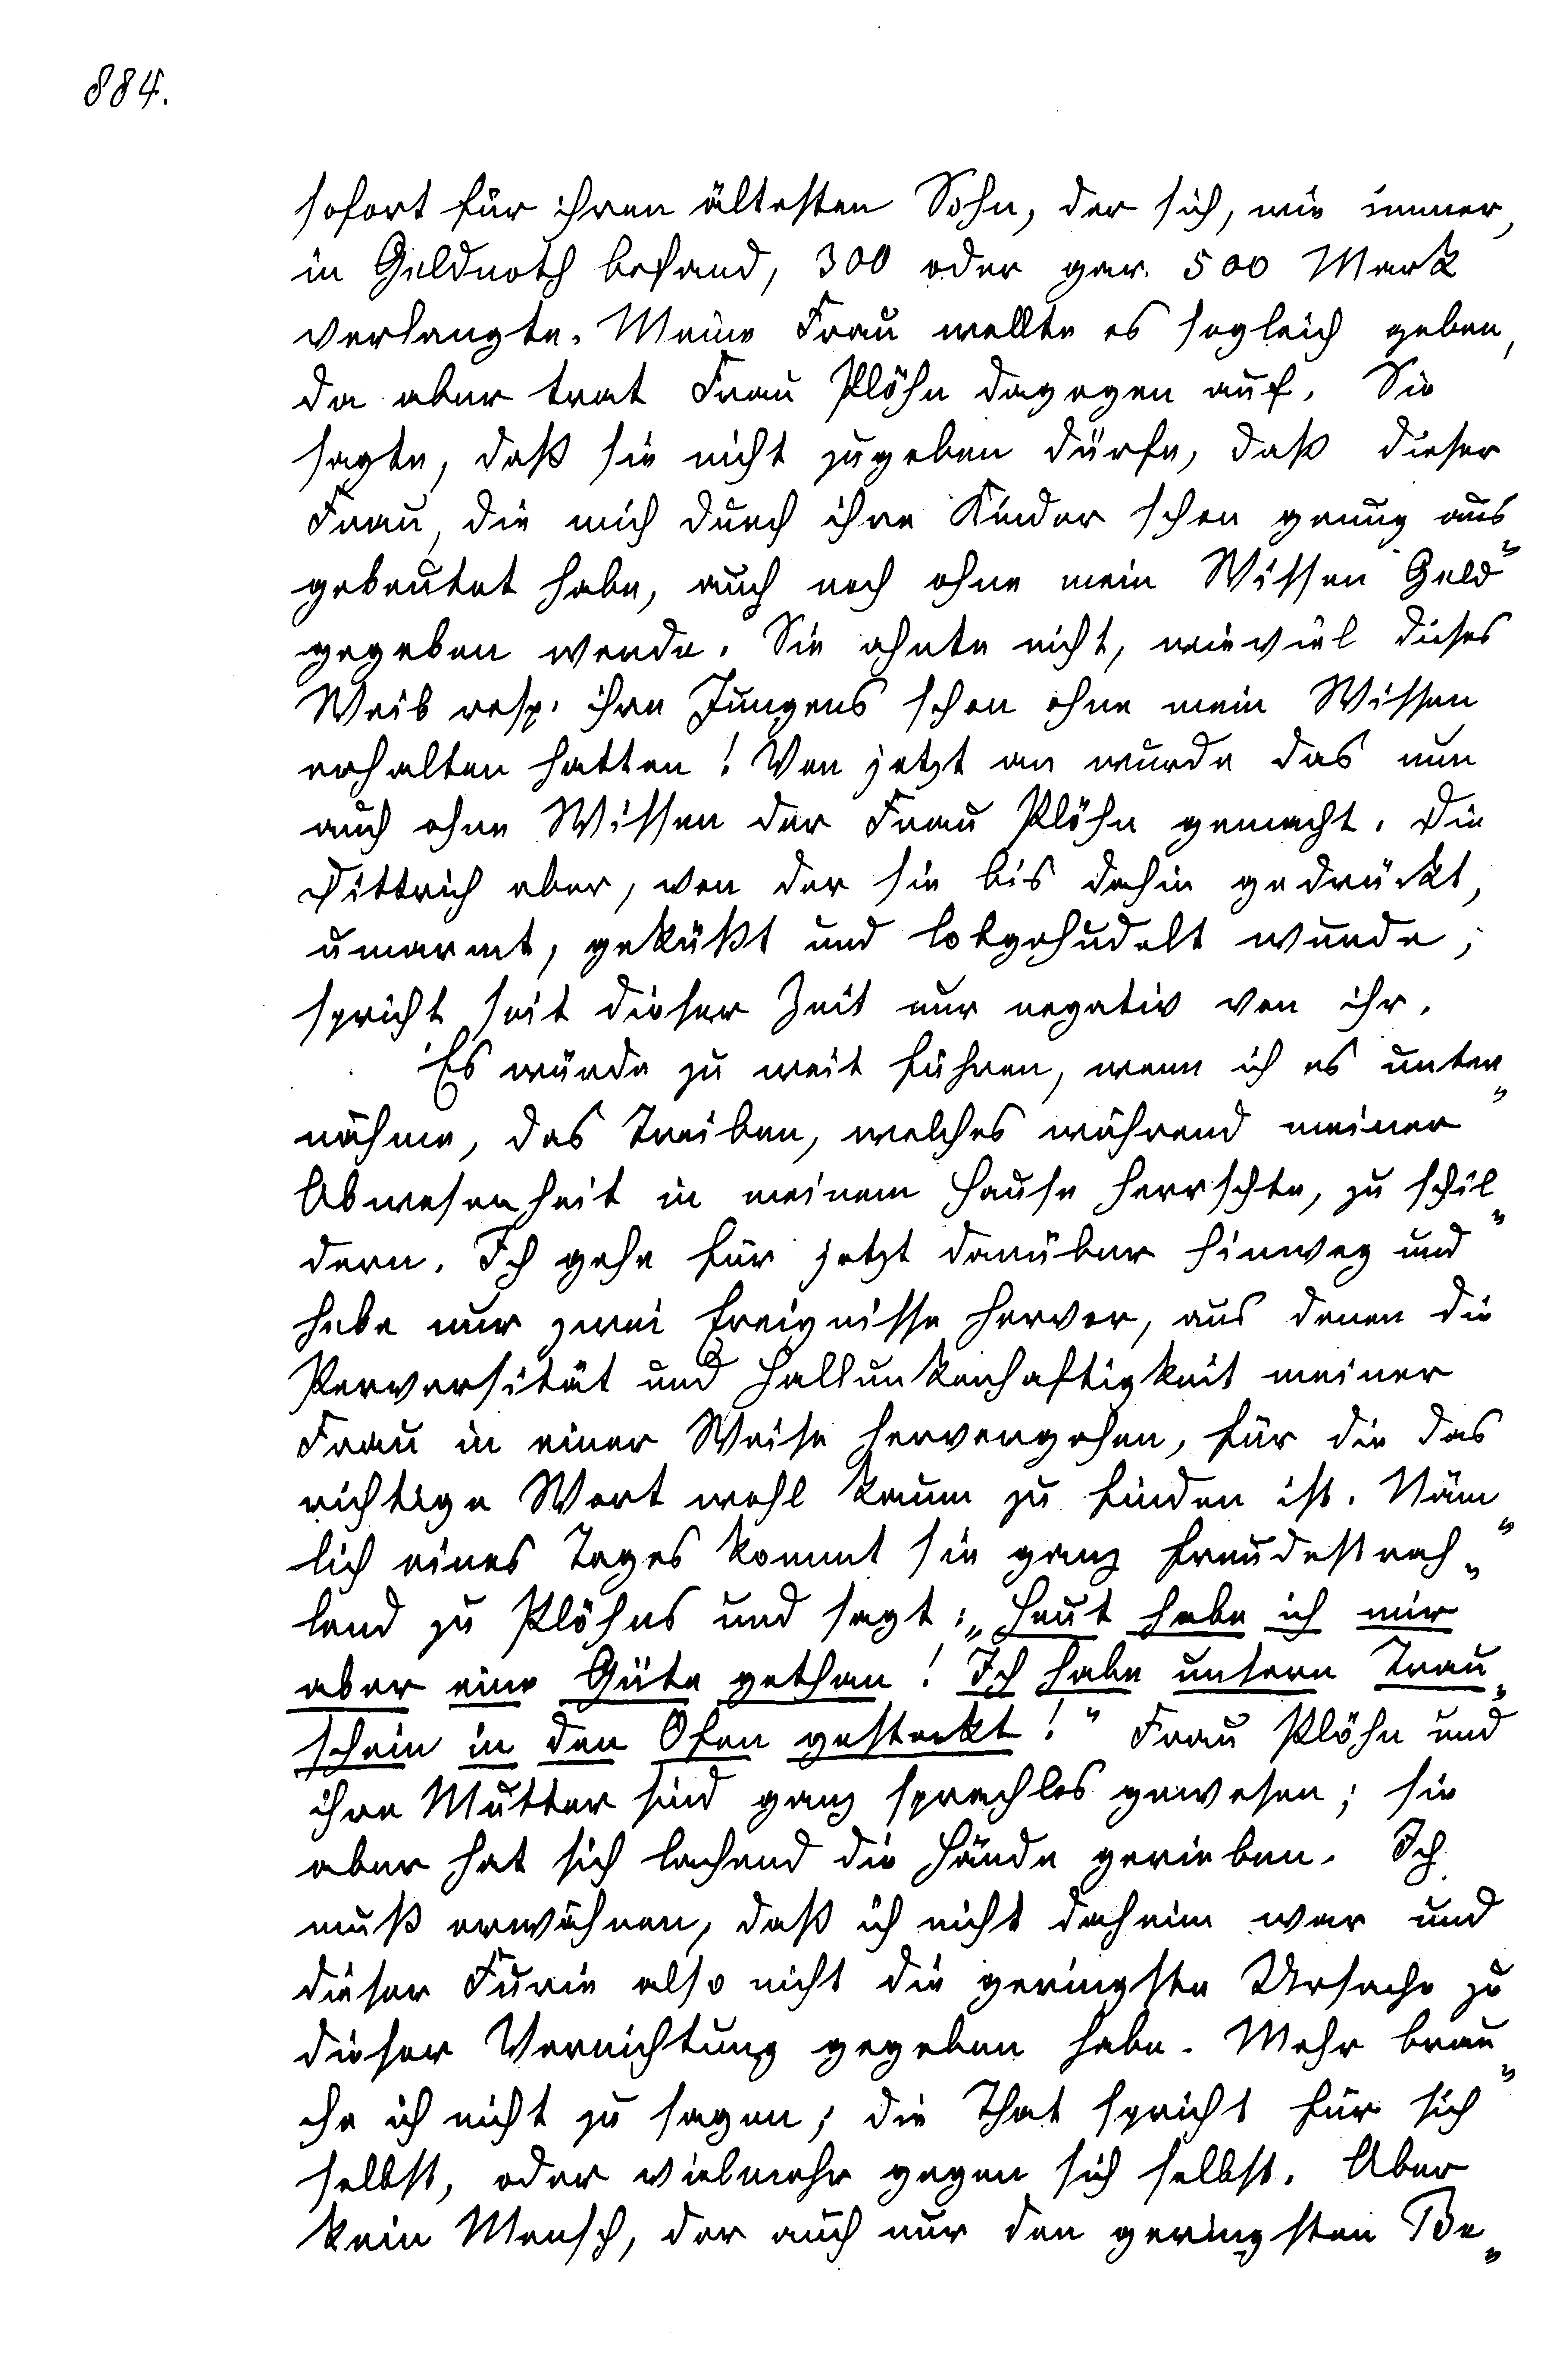 884.
sofort für ihren ältesten Sohn, der sich, wie immer,
in Geldnoth befand, 300 oder gar 500 Mark
verlangte. Meine Frau wollte es sogleich geben,
da aber trat Frau Plöhn dagegen auf. Sie
sagte, daß sie nicht zugeben dürfe, daß dieser
Frau, die mich durch ihre Kinder schon genug aus„
gebeutet habe, auch noch ohne mein Wissen Geld
gegeben werde. Sie ahnte nicht, wieviel dieses
Weib resp. ihre Jungens schon ohne mein Wissen
erhalten hatten! Von jetzt an wurde das nun
auch ohne Wissen der Frau Plöhn gemacht. Die
Dittrich aber, von der sie bis dahin gedrückt,
umarmt, geküßt und lobgehudelt wurde,
spricht seit dieser Zeit nur negativ von ihr.
Es würde zu weit führen, wenn ich es unter„
nähme, das Treiben, welches während meiner
Abwesenheit in meinem Hause herrschte, zu schil„
dern. Ich gehe für jetzt darüber hinweg und
hebe nur zwei Ereignisse hervor, aus denen die
Perversität und Hallunkenhaftigkeit meiner
Frau in einer Weise hervorgehen, für die das
richtige Wort wohl kaum zu finden ist. Näm„
lich eines Tages kommt sie ganz freudestrah„
lend zu Plöhns und sagt: „Heut habe ich mir
aber eine Güte gethan! Ich habe unsern Trau„
schein in den Ofen gesteckt!“ Frau Plöhn und
ihre Mutter sind ganz sprachlos gewesen; sie
aber hat sich lachend die Hände gerieben. Ich
muß erwähnen, daß ich nicht daheim war und
dieser Furie also nicht die geringste Ursache zu
dieser Vernichtung gegeben habe. Mehr brau„
che ich nicht zu sagen; die That spricht für sich
selbst, oder vielmehr gegen sich selbst. Aber
kein Mensch, der auch nur den geringsten Be„